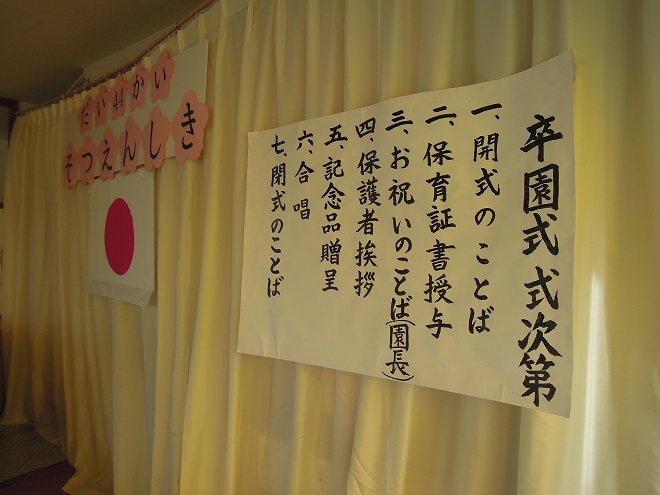 だい44かい
そつえんしき
卒園式式次第
一、開式のことば
二、保育証書授与
三、お祝いのことば(園長)
四、保護者挨拶
五、記念品贈呈
六、合唱
七、閉式のことば